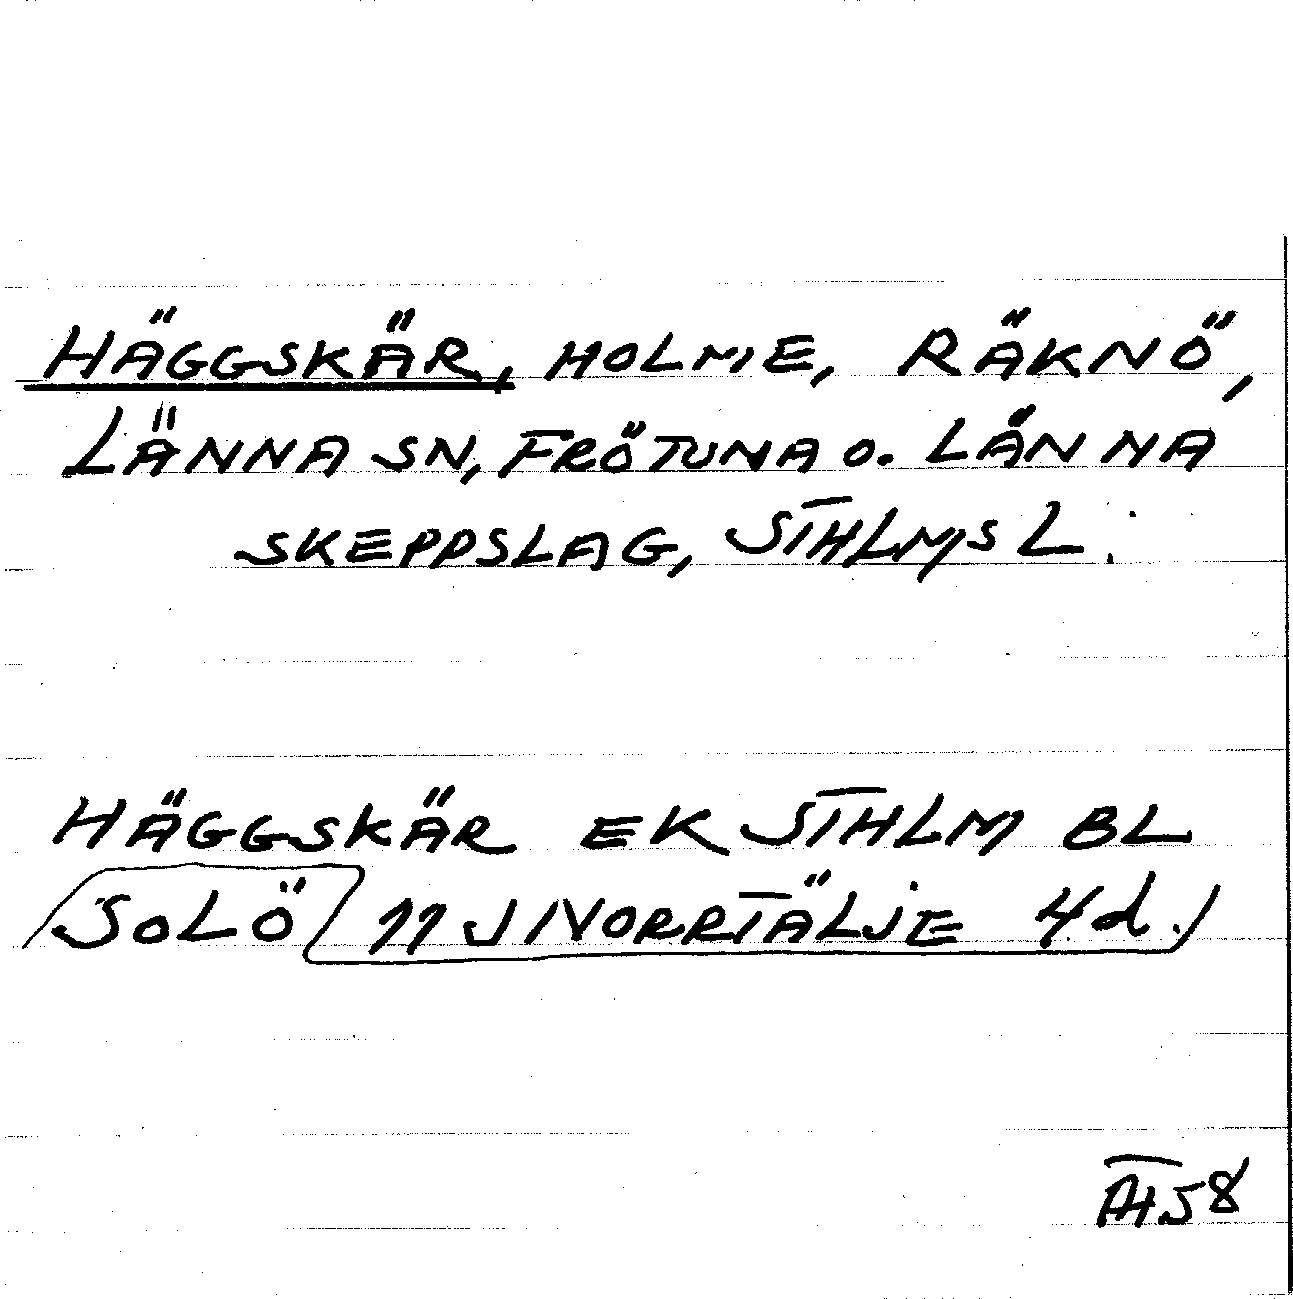 HÄGGSKÄR, HOLME, RÄKNÖ,
LÄNNA SN, FRÖTUNA O. LÄNNA
SKEPPSLAG, STHLMS L.
HÄGGSKÄR EK STHLM BL
SOLÖ 11 J NORRTÄLJE 4d.
58